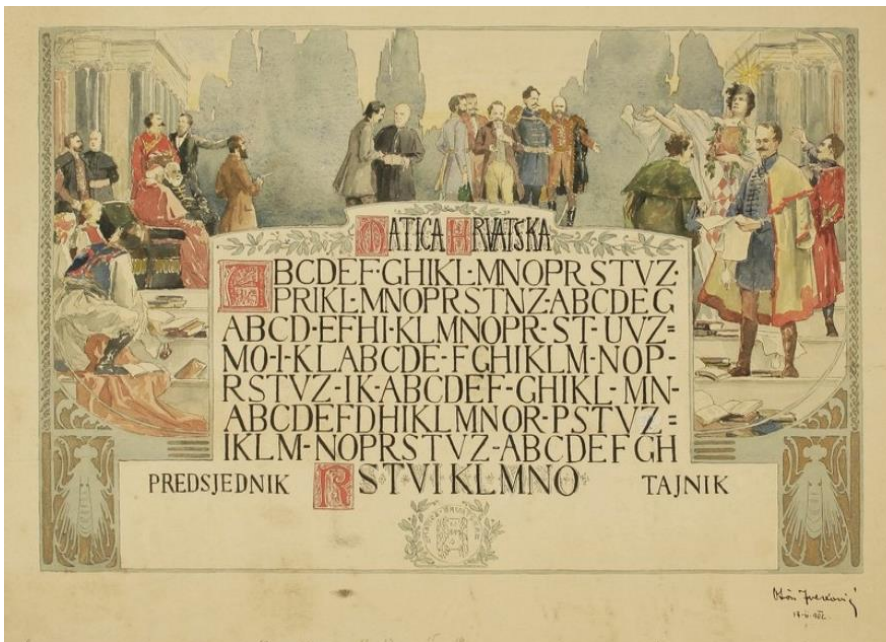 MATICA HRVATSKA
ABCDEF·GHIKL·MNOPRSTVZ·
PRIKL·MNOPRSTNZ·ABCDEG
ABCD·EFHI·KLMNOPR·ST·UVZ=
MO·I·KLABCDE-FGHIKLM-NOP-
RSTVZ-IK·ABCDEF-GHIKL-MN-
ABCDEFDHIKLMNOR-PSTVZ=
IKLM-NOPRSTVZ-ABCDEFGH
PREDSJEDNIK RSTVIKLMNO TAJNIK